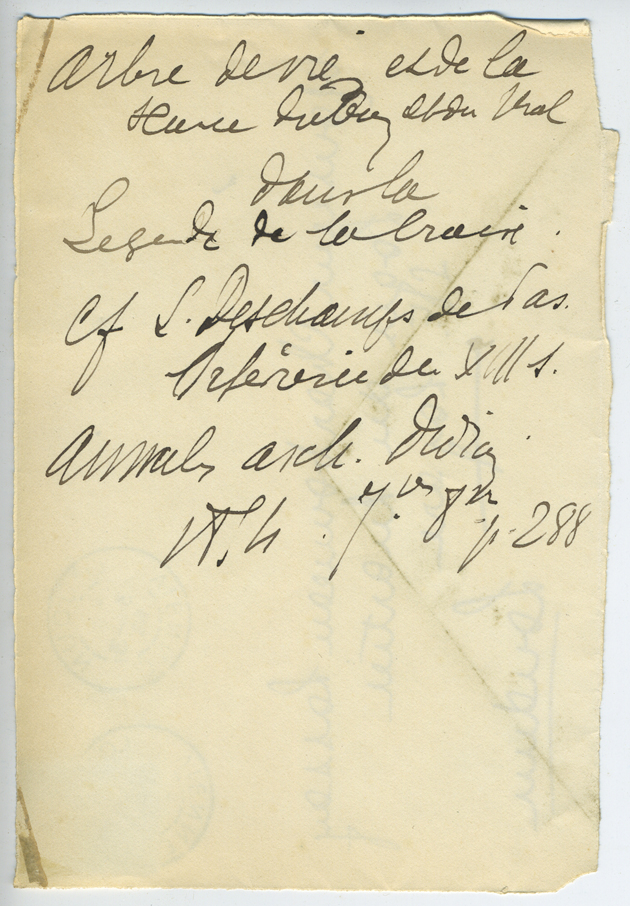 Arbre de vie, et de la
Science du bien et du mal
dans la
Legende de la Croix.
Cf L. Deschamps de Pas.
Orfévrerie du XIII s.
Annales arch. Didron
p. 288